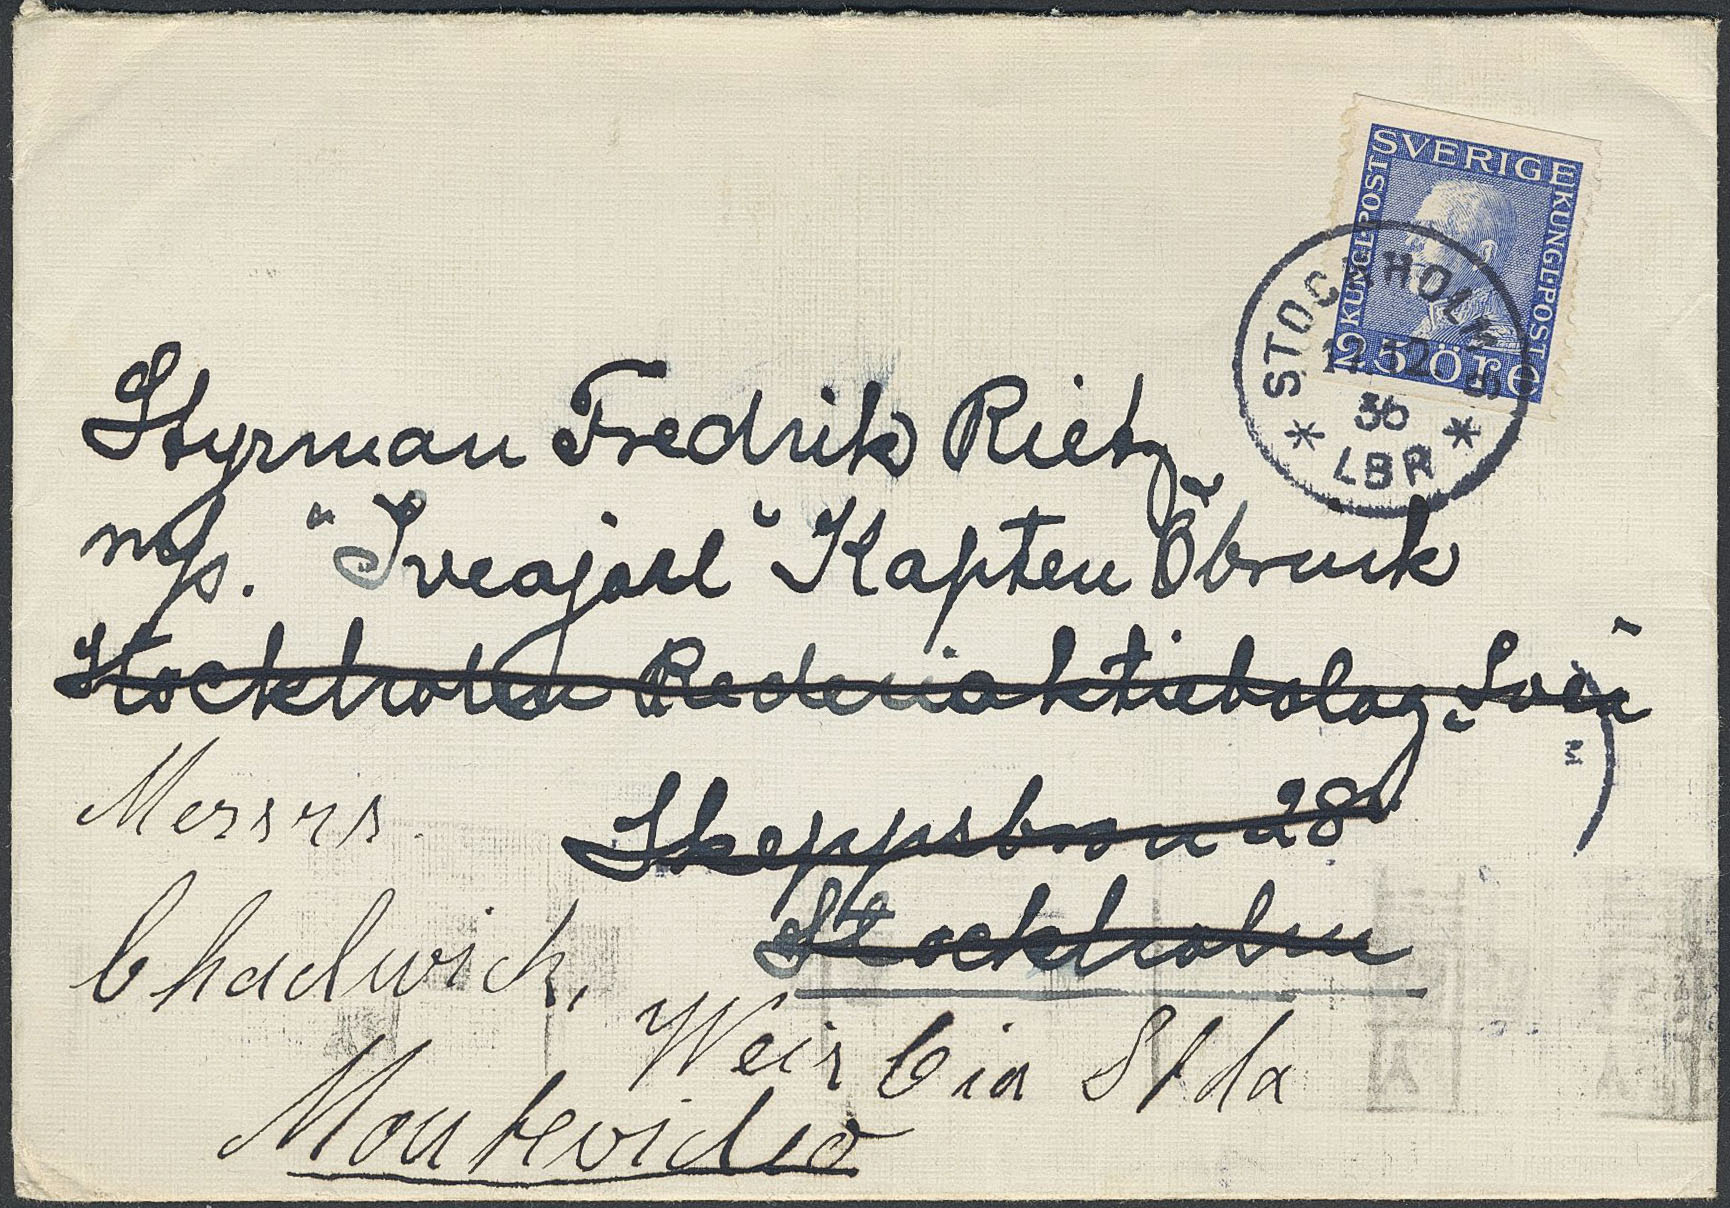 SVERIGE
KUNGL·POST
KUNGL·POST
25 öre
STOCKHOLM
12
36
LBR
Styrman Fredrik Rietz
m/s. "Sveajarl" Kapten Öbrink
Stockholm Rederiaktiebolag "Svea"
Messrs.
Skeppsbron 28
Stockholm
Chadwick,
Weir Cia Slda
Montevideo
M